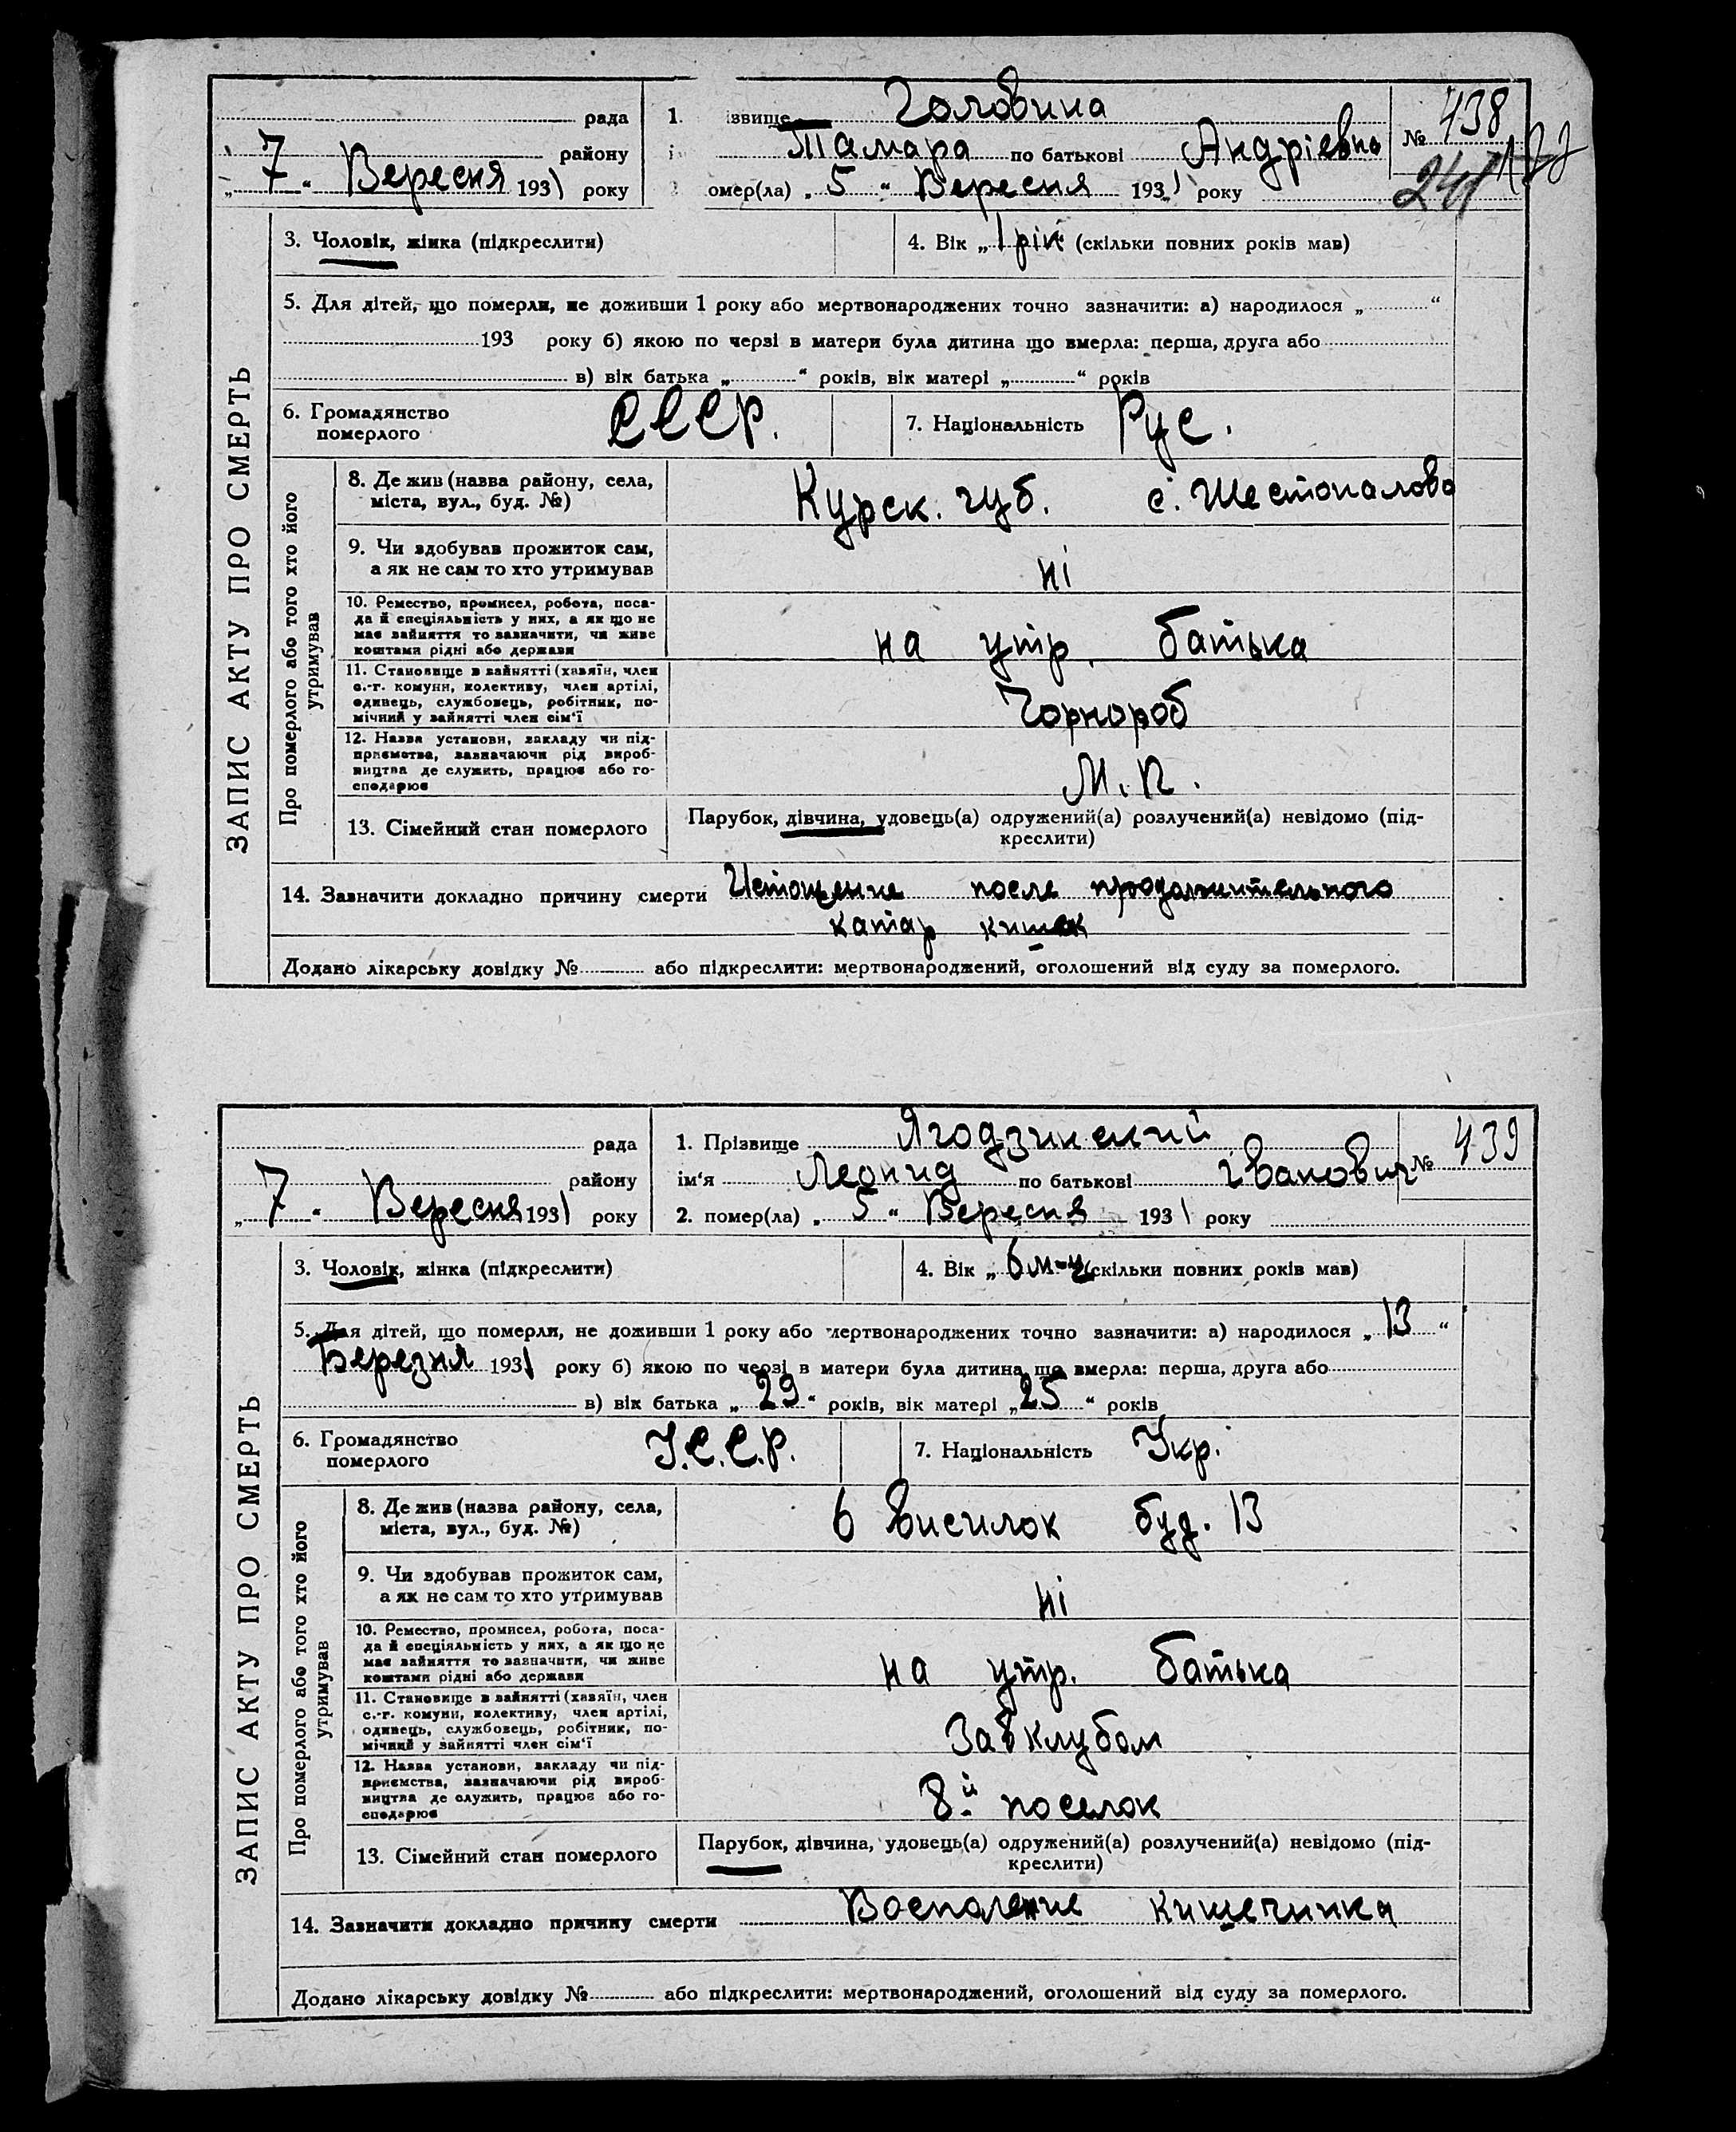 ЗАПИС АКТУ ПРО СМЕРТЬ
рада
району
„ 7 “ Вересня 1931 року
1. ізвище Головина
Тамара по батькові Андріевна
омер(ла) „ 5 “ Вересня 1931 року
№ 438
3. Чоловік, жінка (підкреслити)
4. Вік „ 1 рік (скільки повних років мав)
5. Для дітей, що померли, не доживши 1 року або мертвонароджених точно зазначити: а) народилося „ “
193 року б) якою по черзі в матери була дитина що вмерла: перша, друга або
в) вік батька „ “ років, вік матері „ “ років
6. Громадянство
померлого
СССР.
7. Національність Рус.
Про померлого або того хто його
утримував
8. Де жив (назва району, села,
міста, вул., буд. №)
Курск. губ. с. Шестопалово
9. Чи здобував прожиток сам,
а як не сам то хто утримував
ні
10. Ремество, промисел, робота, поса-
да й спеціяльність у них, а як що не
має зайняття то зазначити, чи живе
коштами рідні або держави
на утр. батька
11. Становище в зайнятті (хазяїн, член
с.-г. комуни, колективу, член артілі,
одинець, службовець, робітник, по-
мічний у зайнятті член сім‘ї
Чорнороб
12. Назва установи, закладу чи під-
приємства, зазначаючи рід вироб-
ництва де служить, працює або го-
сподарює
М. П.
13. Сімейний стан померлого
Парубок, дівчина, удовець(а) одружений(а) розлучений(а) невідомо (під-
креслити)
14. Зазначити докладно причину смерти Истощение после продолжительного
катар кишек
Додано лікарську довідку № або підкреслити: мертвонароджений, оголошений від суду за померлого.
ЗАПИС АКТУ ПРО СМЕРТЬ
рада
району
„ 7 “ Вересня 1931 року
1. Прізвище Ягодзинский
ім‘я Леонид по батькові Іванович
2. помер(ла) „ 5 “ Вересня 1931 року
№ 439
3. Чоловік, жінка (підкреслити)
4. Вік „ 6 м-ц (скільки повних років мав)
5. Для дітей, що померли, не доживши 1 року або мертвонароджених точно зазначити: а) народилося „ 13 “
Березня 1931 року б) якою по черзі в матери була дитина що вмерла: перша, друга або
в) вік батька „ 29 “ років, вік матері „ 25 “ років
6. Громадянство
померлого
У.С.С.Р.
7. Національність Укр.
Про померлого або того хто його
утримував
8. Де жив (назва району, села,
міста, вул., буд. №)
6 висилок буд. 13
9. Чи здобував прожиток сам,
а як не сам то хто утримував
ні
10. Ремество, промисел, робота, поса-
да й спеціяльність у них, а як що не
має зайняття то зазначити, чи живе
коштами рідні або держави
на утр. батька
11. Становище в зайнятті (хазяїн, член
с.-г. комуни, колективу, член артілі,
одинець, службовець, робітник, по-
мічний у зайнятті член сім‘ї
Завклубом
12. Назва установи, закладу чи під-
приємства, зазначаючи рід вироб-
ництва де служить, працює або го-
сподарює
8й поселок
13. Сімейний стан померлого
Парубок, дівчина, удовець(а) одружений(а) розлучений(а) невідомо (під-
креслити)
14. Зазначити докладно причину смерти Воспаление кишечника
Додано лікарську довідку № або підкреслити: мертвонароджений, оголошений від суду за померлого.